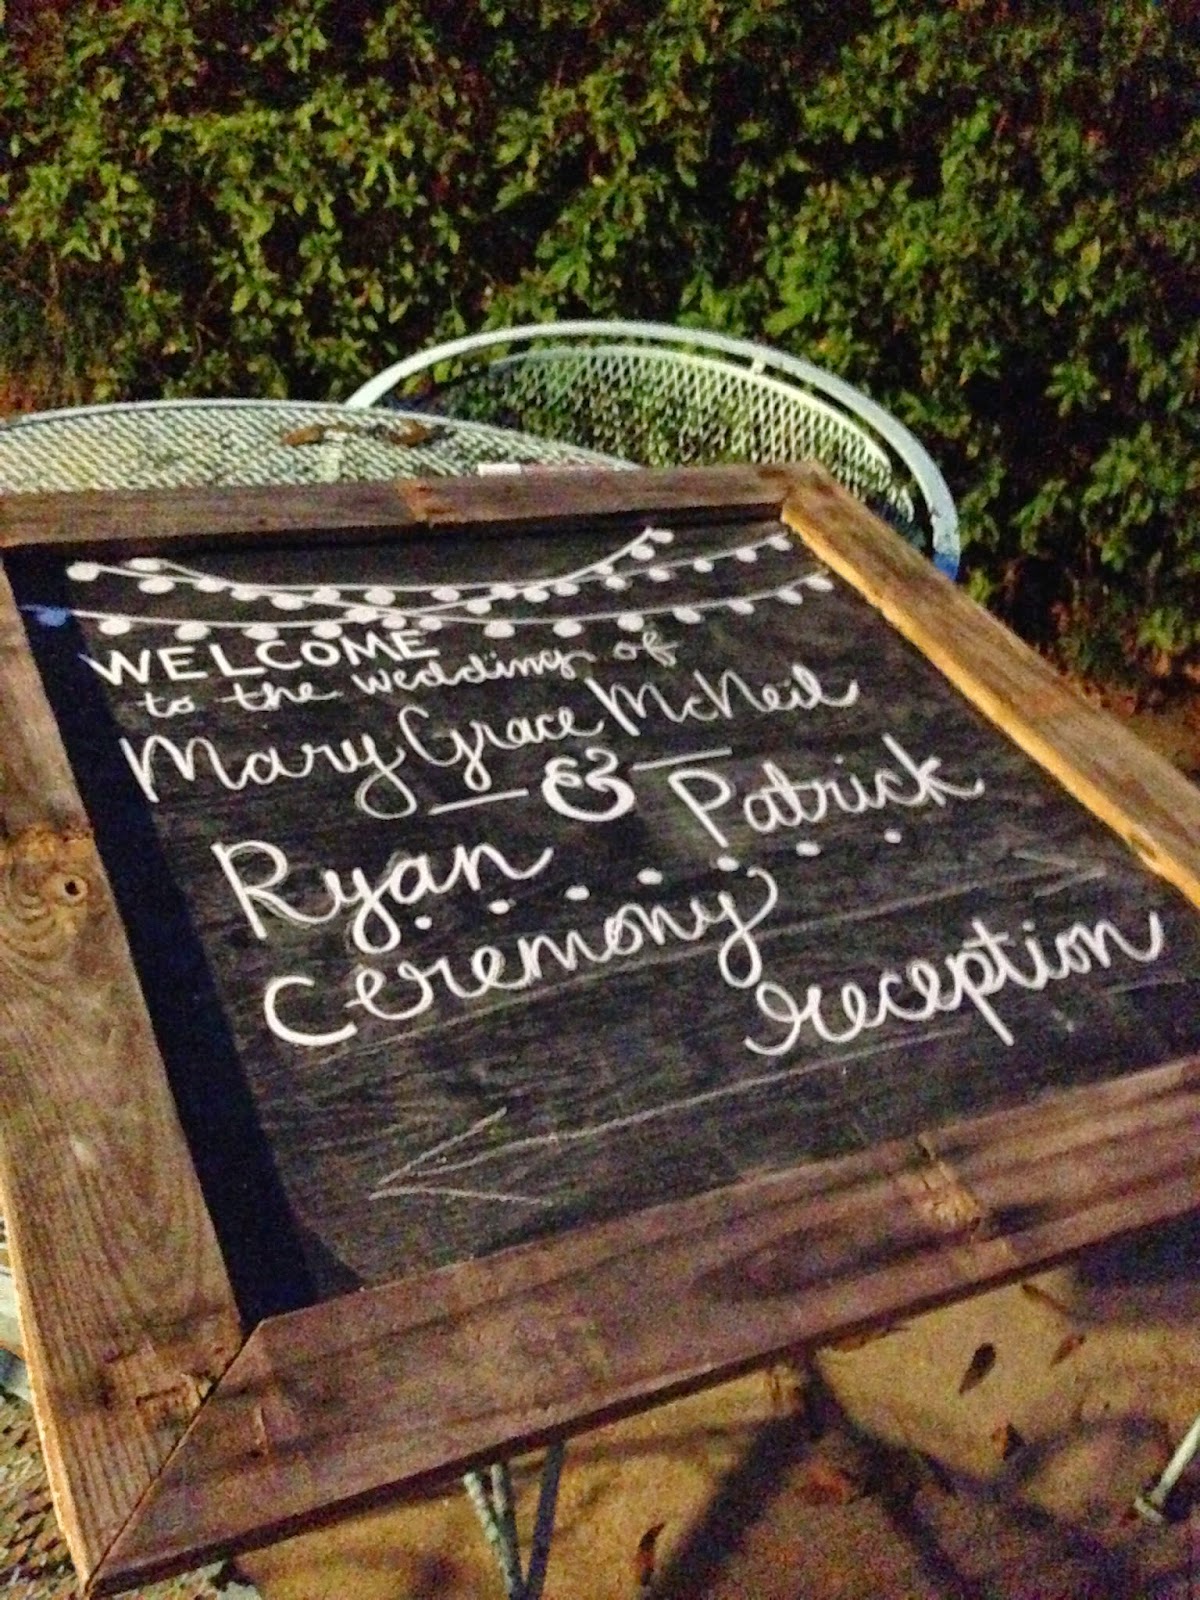 WELCOME
to the wedding of
Mary Grace McNeil
&
Ryan Patrick
Ceremony
reception